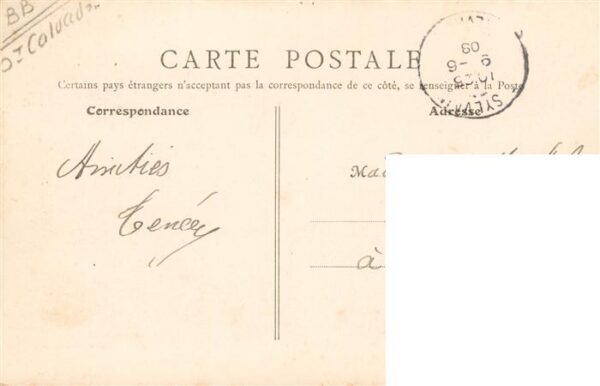 BB
Dt Calvados
CARTE POSTALE
Certains pays étrangers n'acceptant pas la correspondance de ce côté, se renseigner à la Poste
Correspondance
Adresse
Amitiés
Mad
à
9 - 6
09